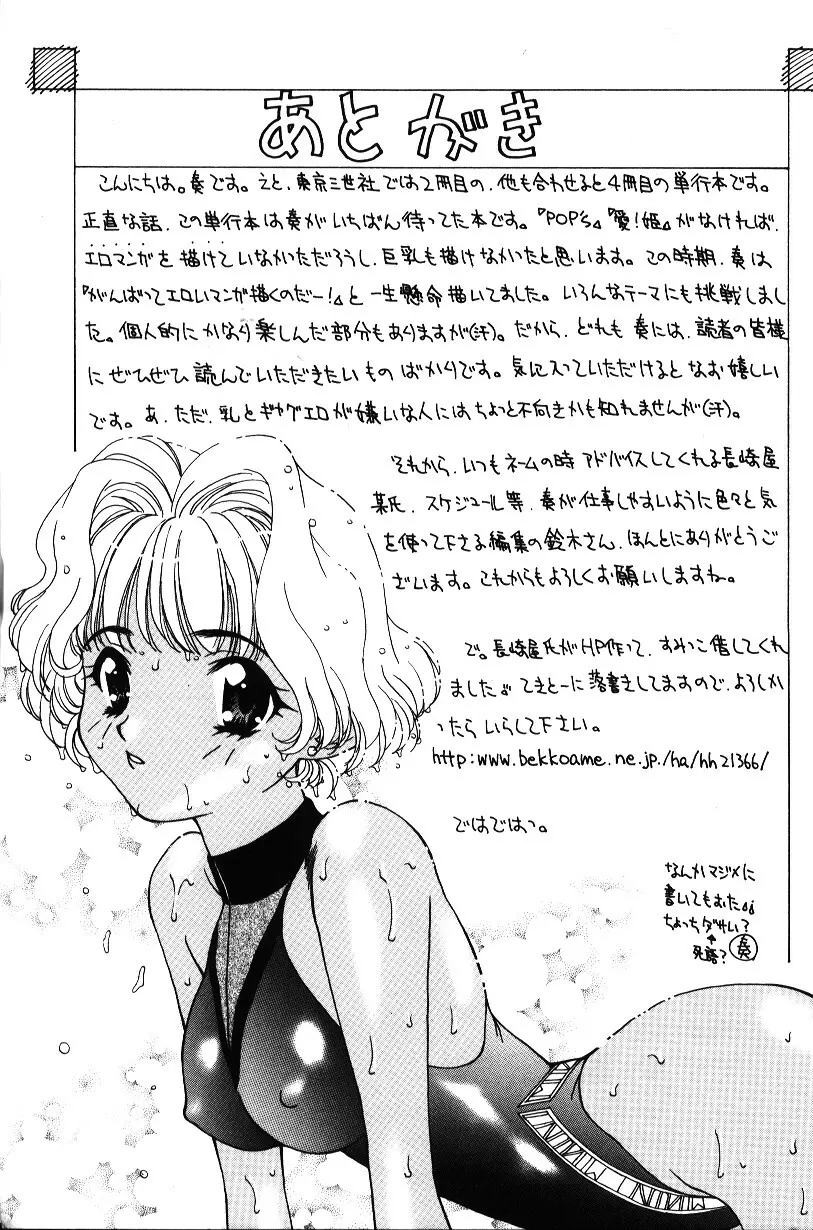 あとがき
こんにちは。奏です。えと、東京三世社では2冊目の、他も合わせると4冊目の単行本です。
正直な話、この単行本は奏がいちばん待ってた本です。『POP's』『愛!姫』がなければ、
エロマンガを描けていなかただろうし、巨乳も描けなかたと思います。この時期、奏は
『がんばってエロいマンガ描くのだー!』と一生懸命描いてました。いろんなテーマにも挑戦しまし
た。個人的にかなり楽しんだ部分もありますが(汗)。だから、どれも奏には、読者の皆様
にぜひぜひ読んでいただきたいものばかりです。気に入っていただけるとなお嬉しい
です。あ、ただ、乳とギャグエロが嫌いな人にはちょっと不向きかも知れませんが(汗)。
それから、いつもネームの時アドバイスしてくれる長崎屋
某氏、スケジュール等、奏が仕事しやすいように色々と気
を使って下さる編集の鈴木さん、ほんとにありがとうご
ざいます。これからもよろしくお願いしますね。
で。長崎屋氏がHP作って、すみっこ借してくれ
ました♪てきとーに落書きしてますので、よろしか
ったらいらして下さい。
http:www.bekkoame.ne.jp./ha/hh21366/
ではではっ。
なんかマジメに
書いてもおた
ちょっちダサい?
↑
死語?
奏
MIZUNO